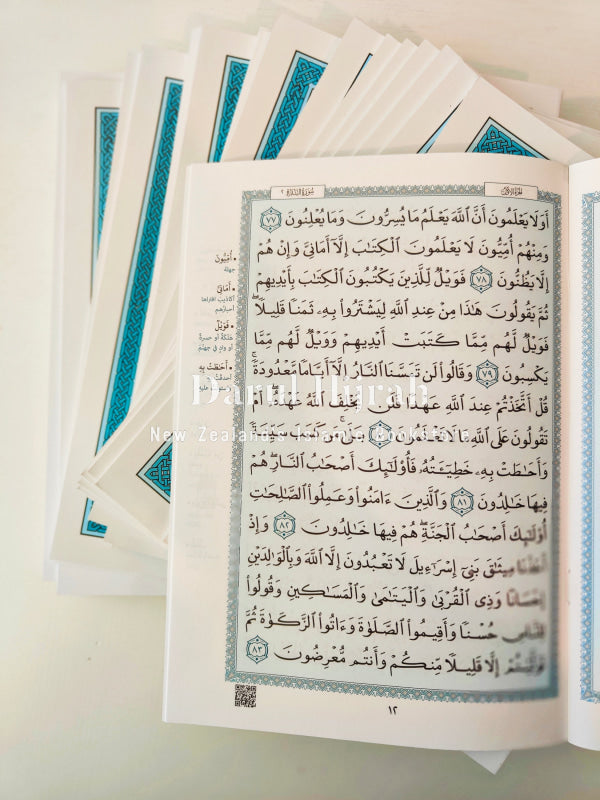 سُورَةُ البَقَرَةِ ٢
الجُزْءُ الأَوَّلُ
أَوَلَا يَعْلَمُونَ أَنَّ ٱللَّهَ يَعْلَمُ مَا يُسِرُّونَ وَمَا يُعْلِنُونَ ٧٧
وَمِنْهُمْ أُمِّيُّونَ لَا يَعْلَمُونَ ٱلْكِتَٰبَ إِلَّآ أَمَانِىَّ وَإِنْ هُمْ
إِلَّا يَظُنُّونَ ٧٨ فَوَيْلٌ لِّلَّذِينَ يَكْتُبُونَ ٱلْكِتَٰبَ بِأَيْدِيهِمْ
ثُمَّ يَقُولُونَ هَٰذَا مِنْ عِندِ ٱللَّهِ لِيَشْتَرُوا۟ بِهِۦ ثَمَنًا قَلِيلًا ۖ
فَوَيْلٌ لَّهُم مِّمَّا كَتَبَتْ أَيْدِيهِمْ وَوَيْلٌ لَّهُم مِّمَّا
يَكْسِبُونَ ٧٩ وَقَالُوا۟ لَن تَمَسَّنَا ٱلنَّارُ إِلَّآ أَيَّامًا مَّعْدُودَةً ۚ
قُلْ أَتَّخَذْتُمْ عِندَ ٱللَّهِ عَهْدًا فَلَن يُخْلِفَ ٱللَّهُ عَهْدَهُۥٓ ۖ أَمْ
تَقُولُونَ عَلَى ٱللَّهِ مَا لَا تَعْلَمُونَ ٨٠ بَلَىٰ مَن كَسَبَ سَيِّئَةً
وَأَحَٰطَتْ بِهِۦ خَطِيٓـَٔتُهُۥ فَأُو۟لَٰٓئِكَ أَصْحَٰبُ ٱلنَّارِ ۖ هُمْ
فِيهَا خَٰلِدُونَ ٨١ وَٱلَّذِينَ ءَامَنُوا۟ وَعَمِلُوا۟ ٱلصَّٰلِحَٰتِ
أُو۟لَٰٓئِكَ أَصْحَٰبُ ٱلْجَنَّةِ ۖ هُمْ فِيهَا خَٰلِدُونَ ٨٢ وَإِذْ
أَخَذْنَا مِيثَٰقَ بَنِىٓ إِسْرَٰٓءِيلَ لَا تَعْبُدُونَ إِلَّا ٱللَّهَ وَبِٱلْوَٰلِدَيْنِ
إِحْسَانًا وَذِى ٱلْقُرْبَىٰ وَٱلْيَتَٰمَىٰ وَٱلْمَسَٰكِينِ وَقُولُوا۟
لِلنَّاسِ حُسْنًا وَأَقِيمُوا۟ ٱلصَّلَوٰةَ وَءَاتُوا۟ ٱلزَّكَوٰةَ ثُمَّ
تَوَلَّيْتُمْ إِلَّا قَلِيلًا مِّنكُمْ وَأَنتُم مُّعْرِضُونَ ٨٣
• أُمِّيُّونَ
جهلة
• أَمَانِيَّ
أكاذيب افتراها
أحبارهم
• فَوَيْلٌ
هلكة أو حسرة
أو وادٍ في جهنّم
• أَحَاطَتْ بِهِ
أحدقت به
عليه
١٢
Darul Hijrah
New Zealand's Islamic Bookstore